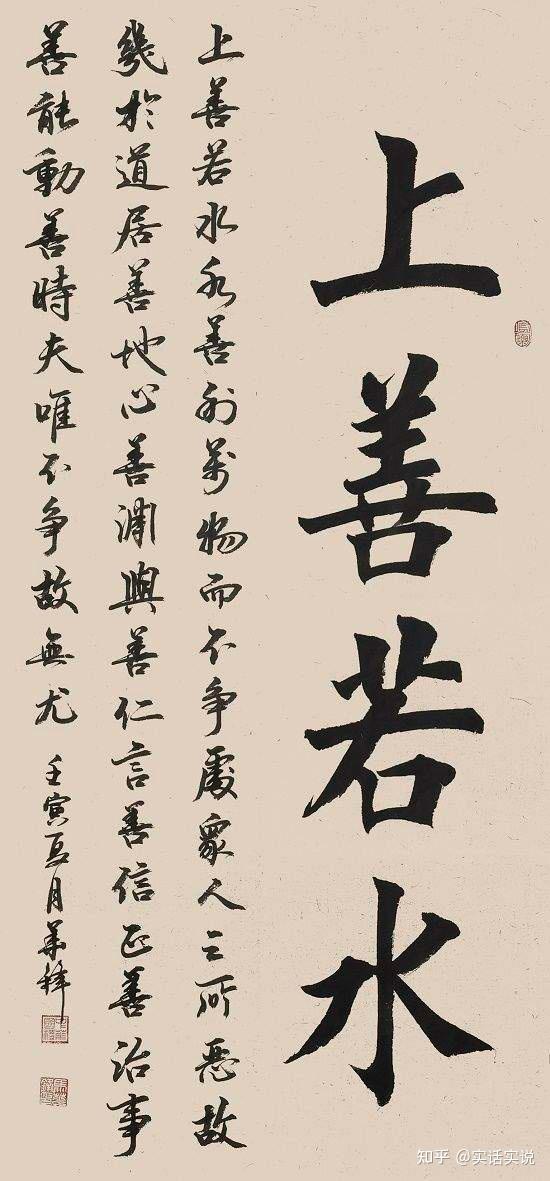 上善若水
上善若水水善利萬物而不争處衆人之所惡故
幾於道居善地心善淵與善仁言善信正善治事
善能動善時夫唯不争故無尤
壬寅 月華
知乎 @实话实说